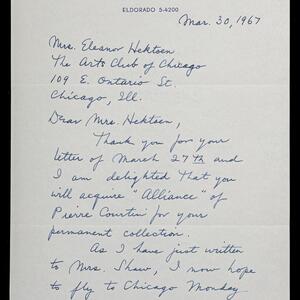 ELDORADO 5-4200
Mar. 30, 1967
Mrs. Eleanor Hektoen
The Arts Club of Chicago
109 E. Ontario St.
Chicago, Ill.
Dear Mrs. Hektoen,
Thank you for your
letter of March 27th and
I am delighted that you
will acquire "Alliance" of
Pierre Courtin for your
permanent collection.
As I have just written
to Mrs. Shaw, I now hope
to fly to Chicago Monday